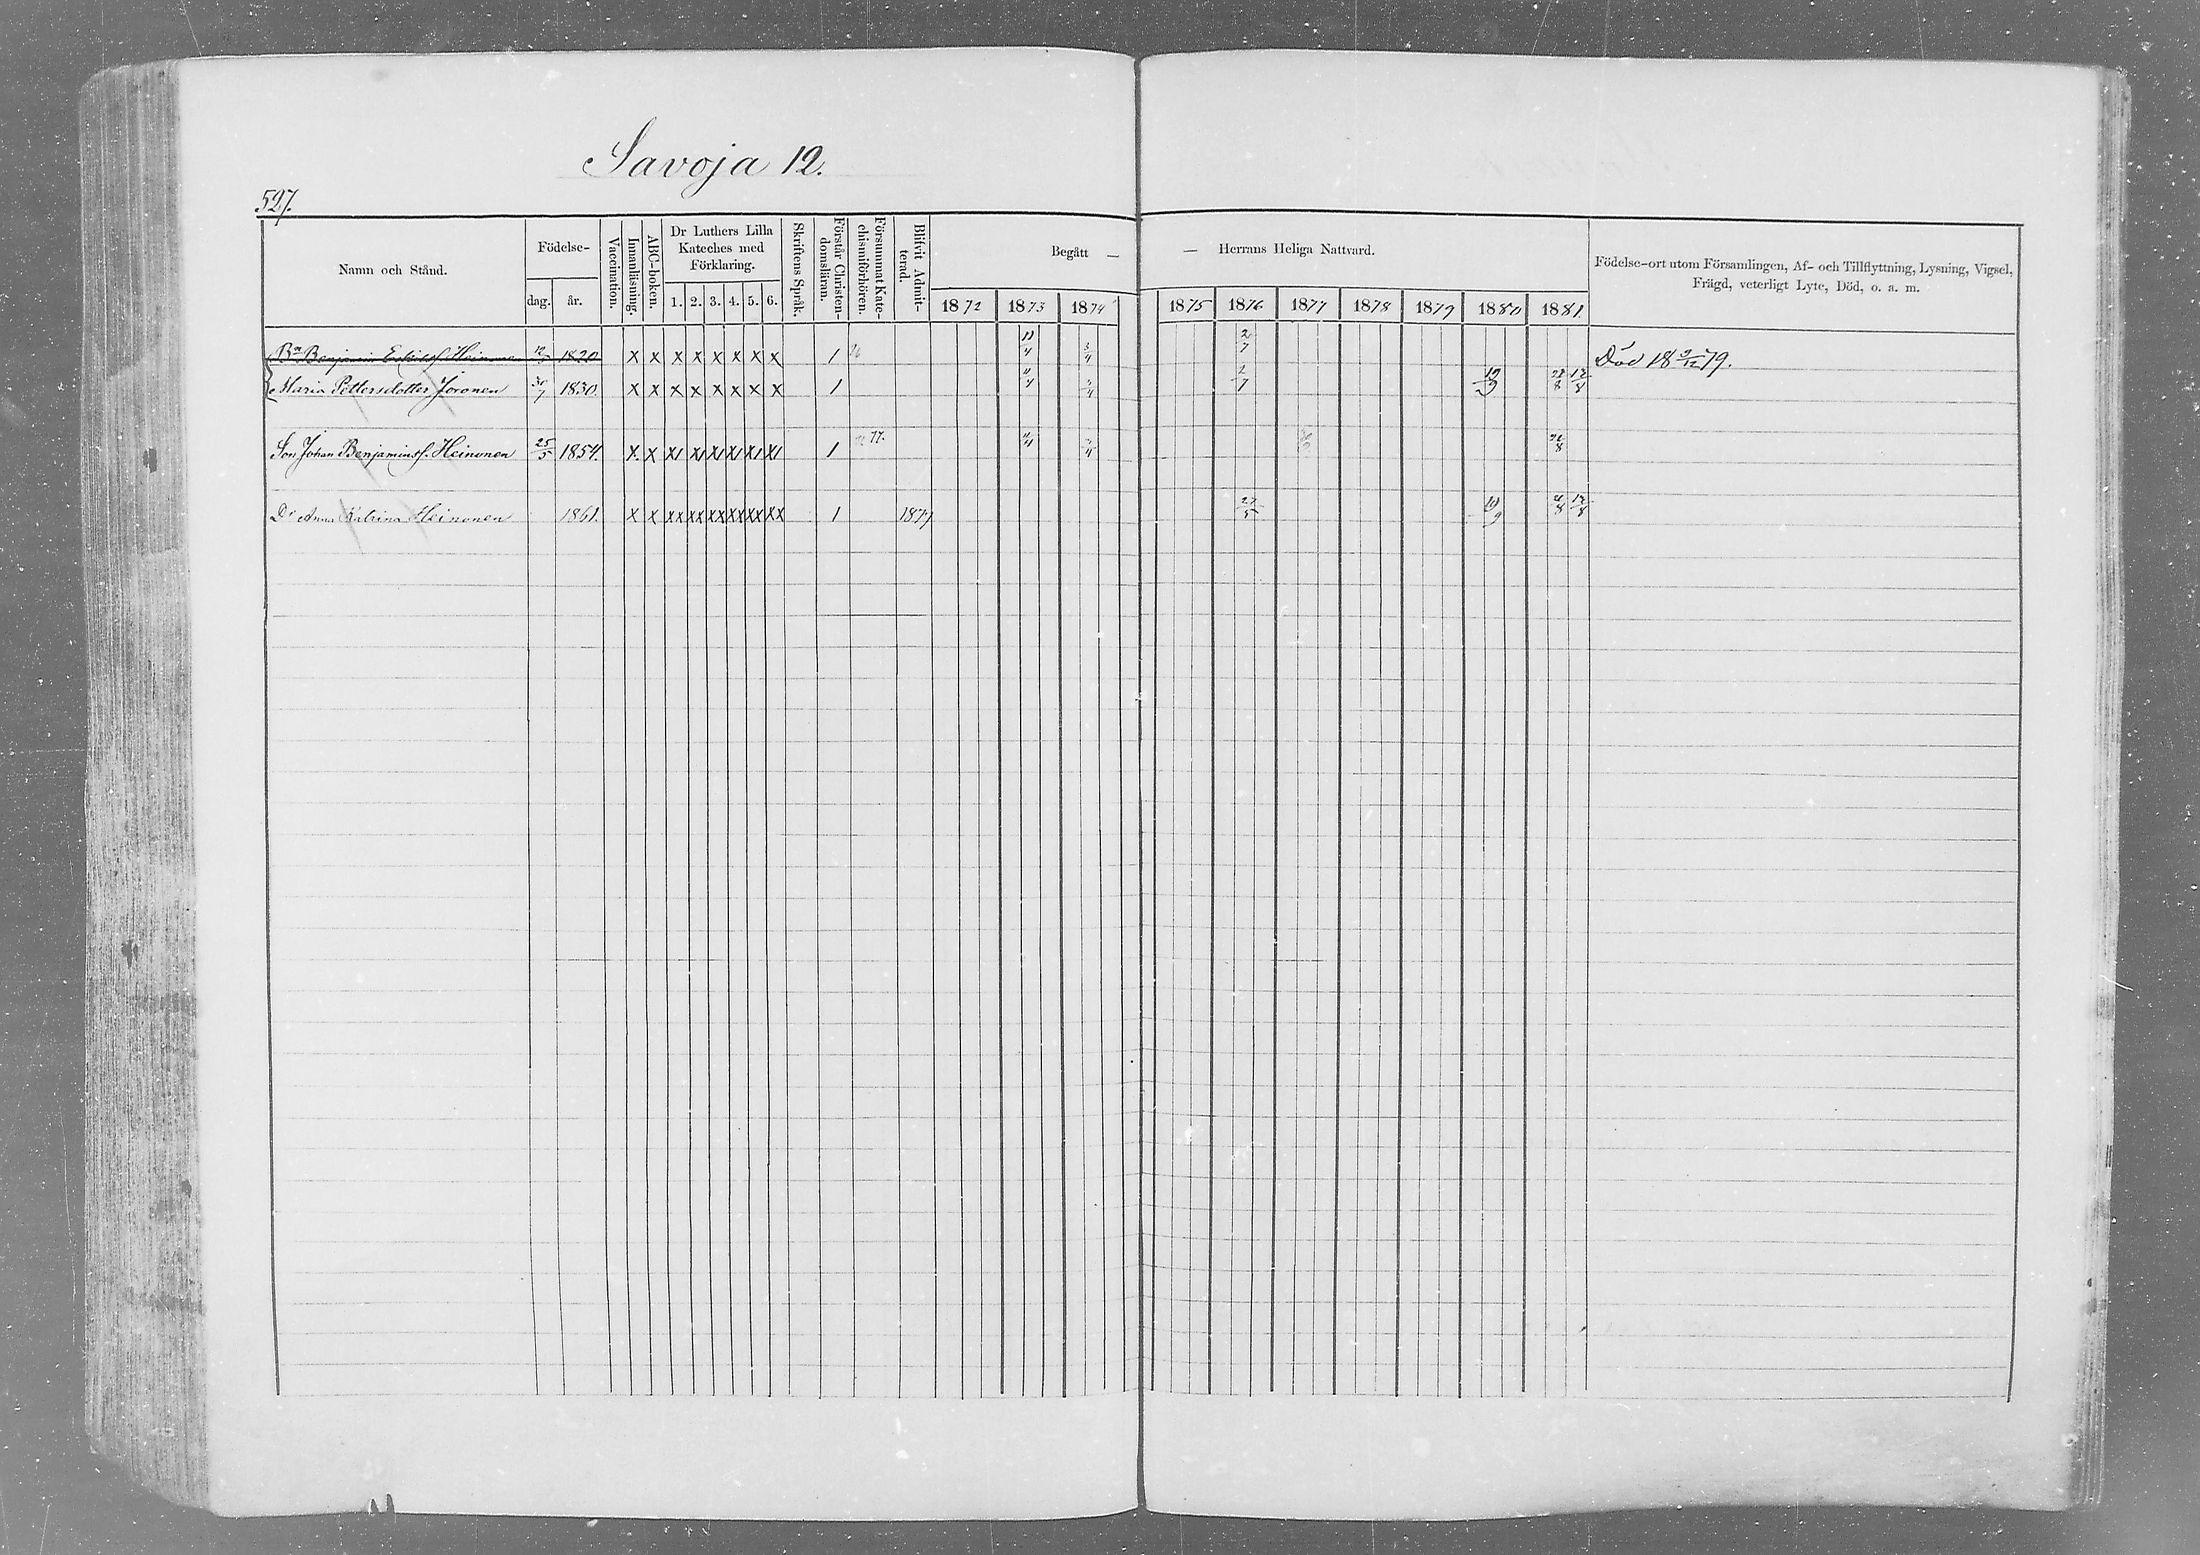 Savoja 12.
527.
Namn och Stånd.
Födelse-
dag.
år.
Vaccination.
Innanläsning.
ABC-boken.
Dr Luthers Lilla
Kateches med
Förklaring.
1. 2. 3. 4. 5. 6.
Skriftens Språk.
Förstår Christen-
domsläran.
Försummat Kate-
chismiförhören.
Blifvit Admit-
terad.
Begått —
— Herrans Heliga Nattvard.
1872 1873 1874 1875 1876 1877 1878 1879 1880 1881
Födelse-ort utom Församlingen, Af- och Tillflyttning, Lysning, Vigsel,
Frägd, veterligt Lyte, Död, o. a. m.
Bn Benjamin Heinonen 1820 x x x x x x x x 1 11/4 3/4 2/7 Död 18 9/12 79.
Maria Pettersdotter Joronen 30/7 1830. x x x x x x x x 1 11/4 3/4 2/7 19/9 28/8
Son Johan Benjaminsf. Heinonen 25/5 1854. x x x1 x1 x1 x1 x1 x1 1 77. 11/4 3/4 28/8
Dr Anna Katrina Heinonen 1861. x x xx xx xx xx xx xx 1 1877 27/5 19/9